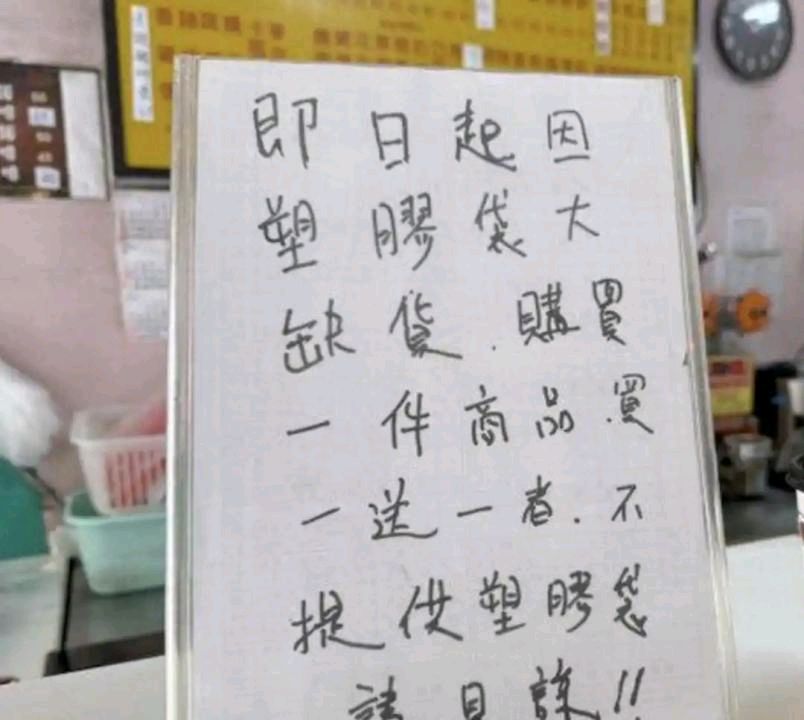 即日起因
塑膠袋大
缺貨.購買
一件商品.買
一送一者.不
提供塑膠袋
請見諒!!